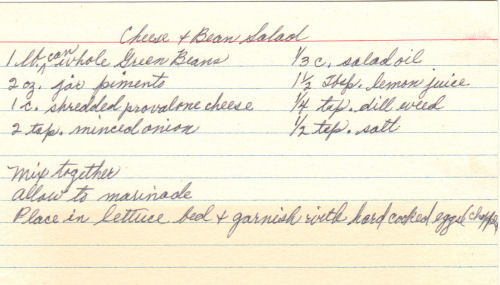 Cheese & Bean Salad
1 lb. can whole Green Beans
2 oz. jar piments
1 c. shredded provalone cheese
2 tsp. minced onion
1/3 c. salad oil
1 1/2 Tbsp. lemon juice
1/4 tsp. dill weed
1/2 tsp. salt
Mix together
Allow to marinade
Place in lettuce bed & garnish with hard cooked eggs (chopped